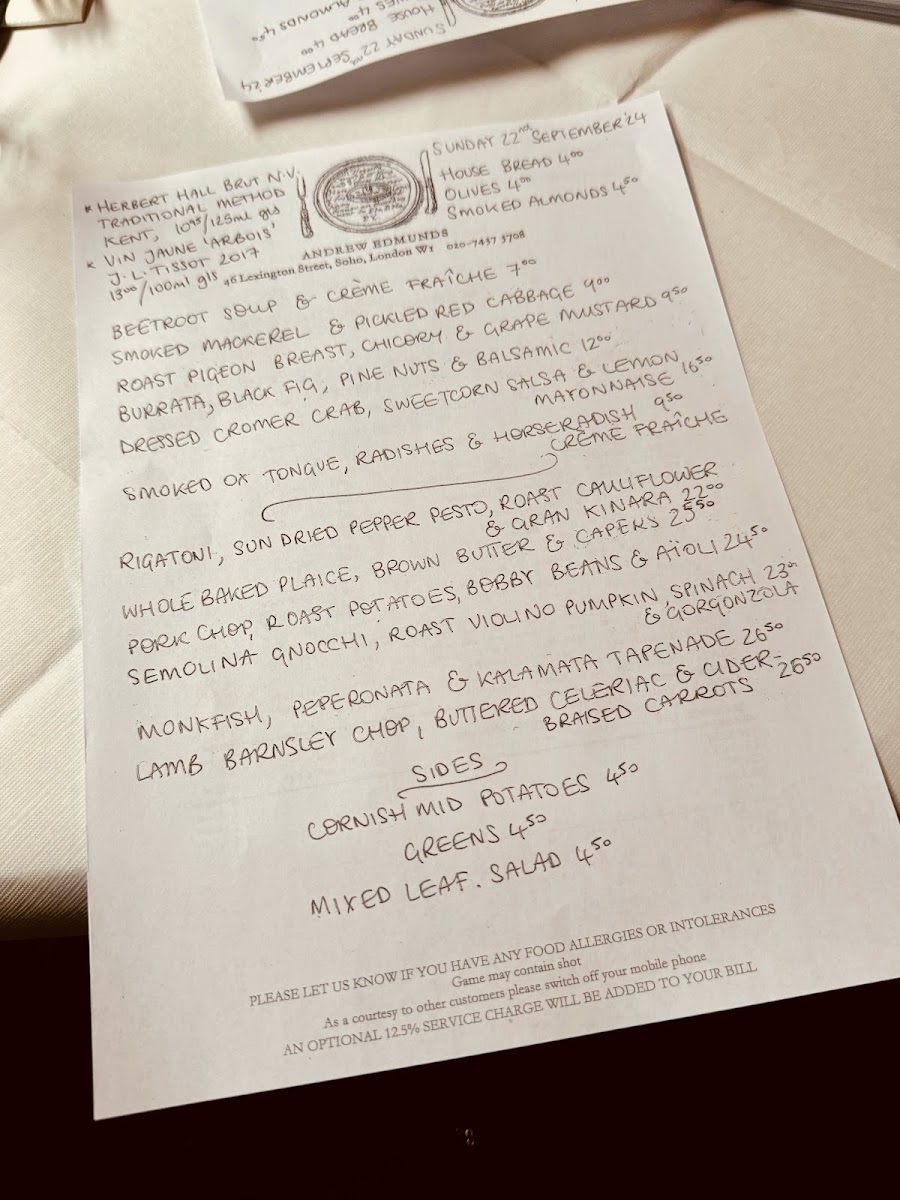 SUNDAY 22nd SEPTEMBER 24
HOUSE BREAD 4 00
ALMONDS 4 50
* HERBERT HALL BRUT N.V.
TRADITIONAL METHOD
KENT, 10 95/125ml gls
* VIN JAUNE 'ARBOIS'
J.L. TISSOT 2017
13 00/100ml gls
SUNDAY 22nd SEPTEMBER '24
HOUSE BREAD 4 00
OLIVES 4 00
SMOKED ALMONDS 4 50
ANDREW EDMUNDS
46 Lexington Street, Soho, London W1 020-7437 5708
BEETROOT SOUP & CRÈME FRAÎCHE 7 00
SMOKED MACKEREL & PICKLED RED CABBAGE 9 00
ROAST PIGEON BREAST, CHICORY & GRAPE MUSTARD 9 50
BURRATA, BLACK FIG, PINE NUTS & BALSAMIC 12 00
DRESSED CROMER CRAB, SWEETCORN SALSA & LEMON
MAYONNAISE 16 50
SMOKED OX TONGUE, RADISHES & HORSERADISH 9 50
CRÈME FRAÎCHE
RIGATONI, SUN DRIED PEPPER PESTO, ROAST CAULIFLOWER
& GRAN KINARA 22 00
WHOLE BAKED PLAICE, BROWN BUTTER & CAPERS 25 50
PORK CHOP, ROAST POTATOES, BOBBY BEANS & AÏOLI 24 50
SEMOLINA GNOCCHI, ROAST VIOLINO PUMPKIN, SPINACH 23
& GORGONZOLA
MONKFISH, PEPERONATA & KALAMATA TAPENADE 26 50
LAMB BARNSLEY CHOP, BUTTERED CELERIAC & CIDER-
BRAISED CARROTS 26 50
SIDES
CORNISH MID POTATOES 4 50
GREENS 4 50
MIXED LEAF. SALAD 4 50
PLEASE LET US KNOW IF YOU HAVE ANY FOOD ALLERGIES OR INTOLERANCES
Game may contain shot
As a courtesy to other customers please switch off your mobile phone
AN OPTIONAL 12.5% SERVICE CHARGE WILL BE ADDED TO YOUR BILL